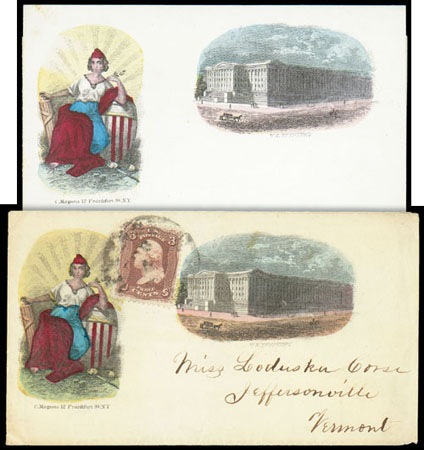 C. Magnus 12 Frankfort St. N.Y.
C. Magnus 12 Frankfort St. N.Y.
3 3
THREE
CENTS
Miss Loduska Corse
Jeffersonville
Vermont